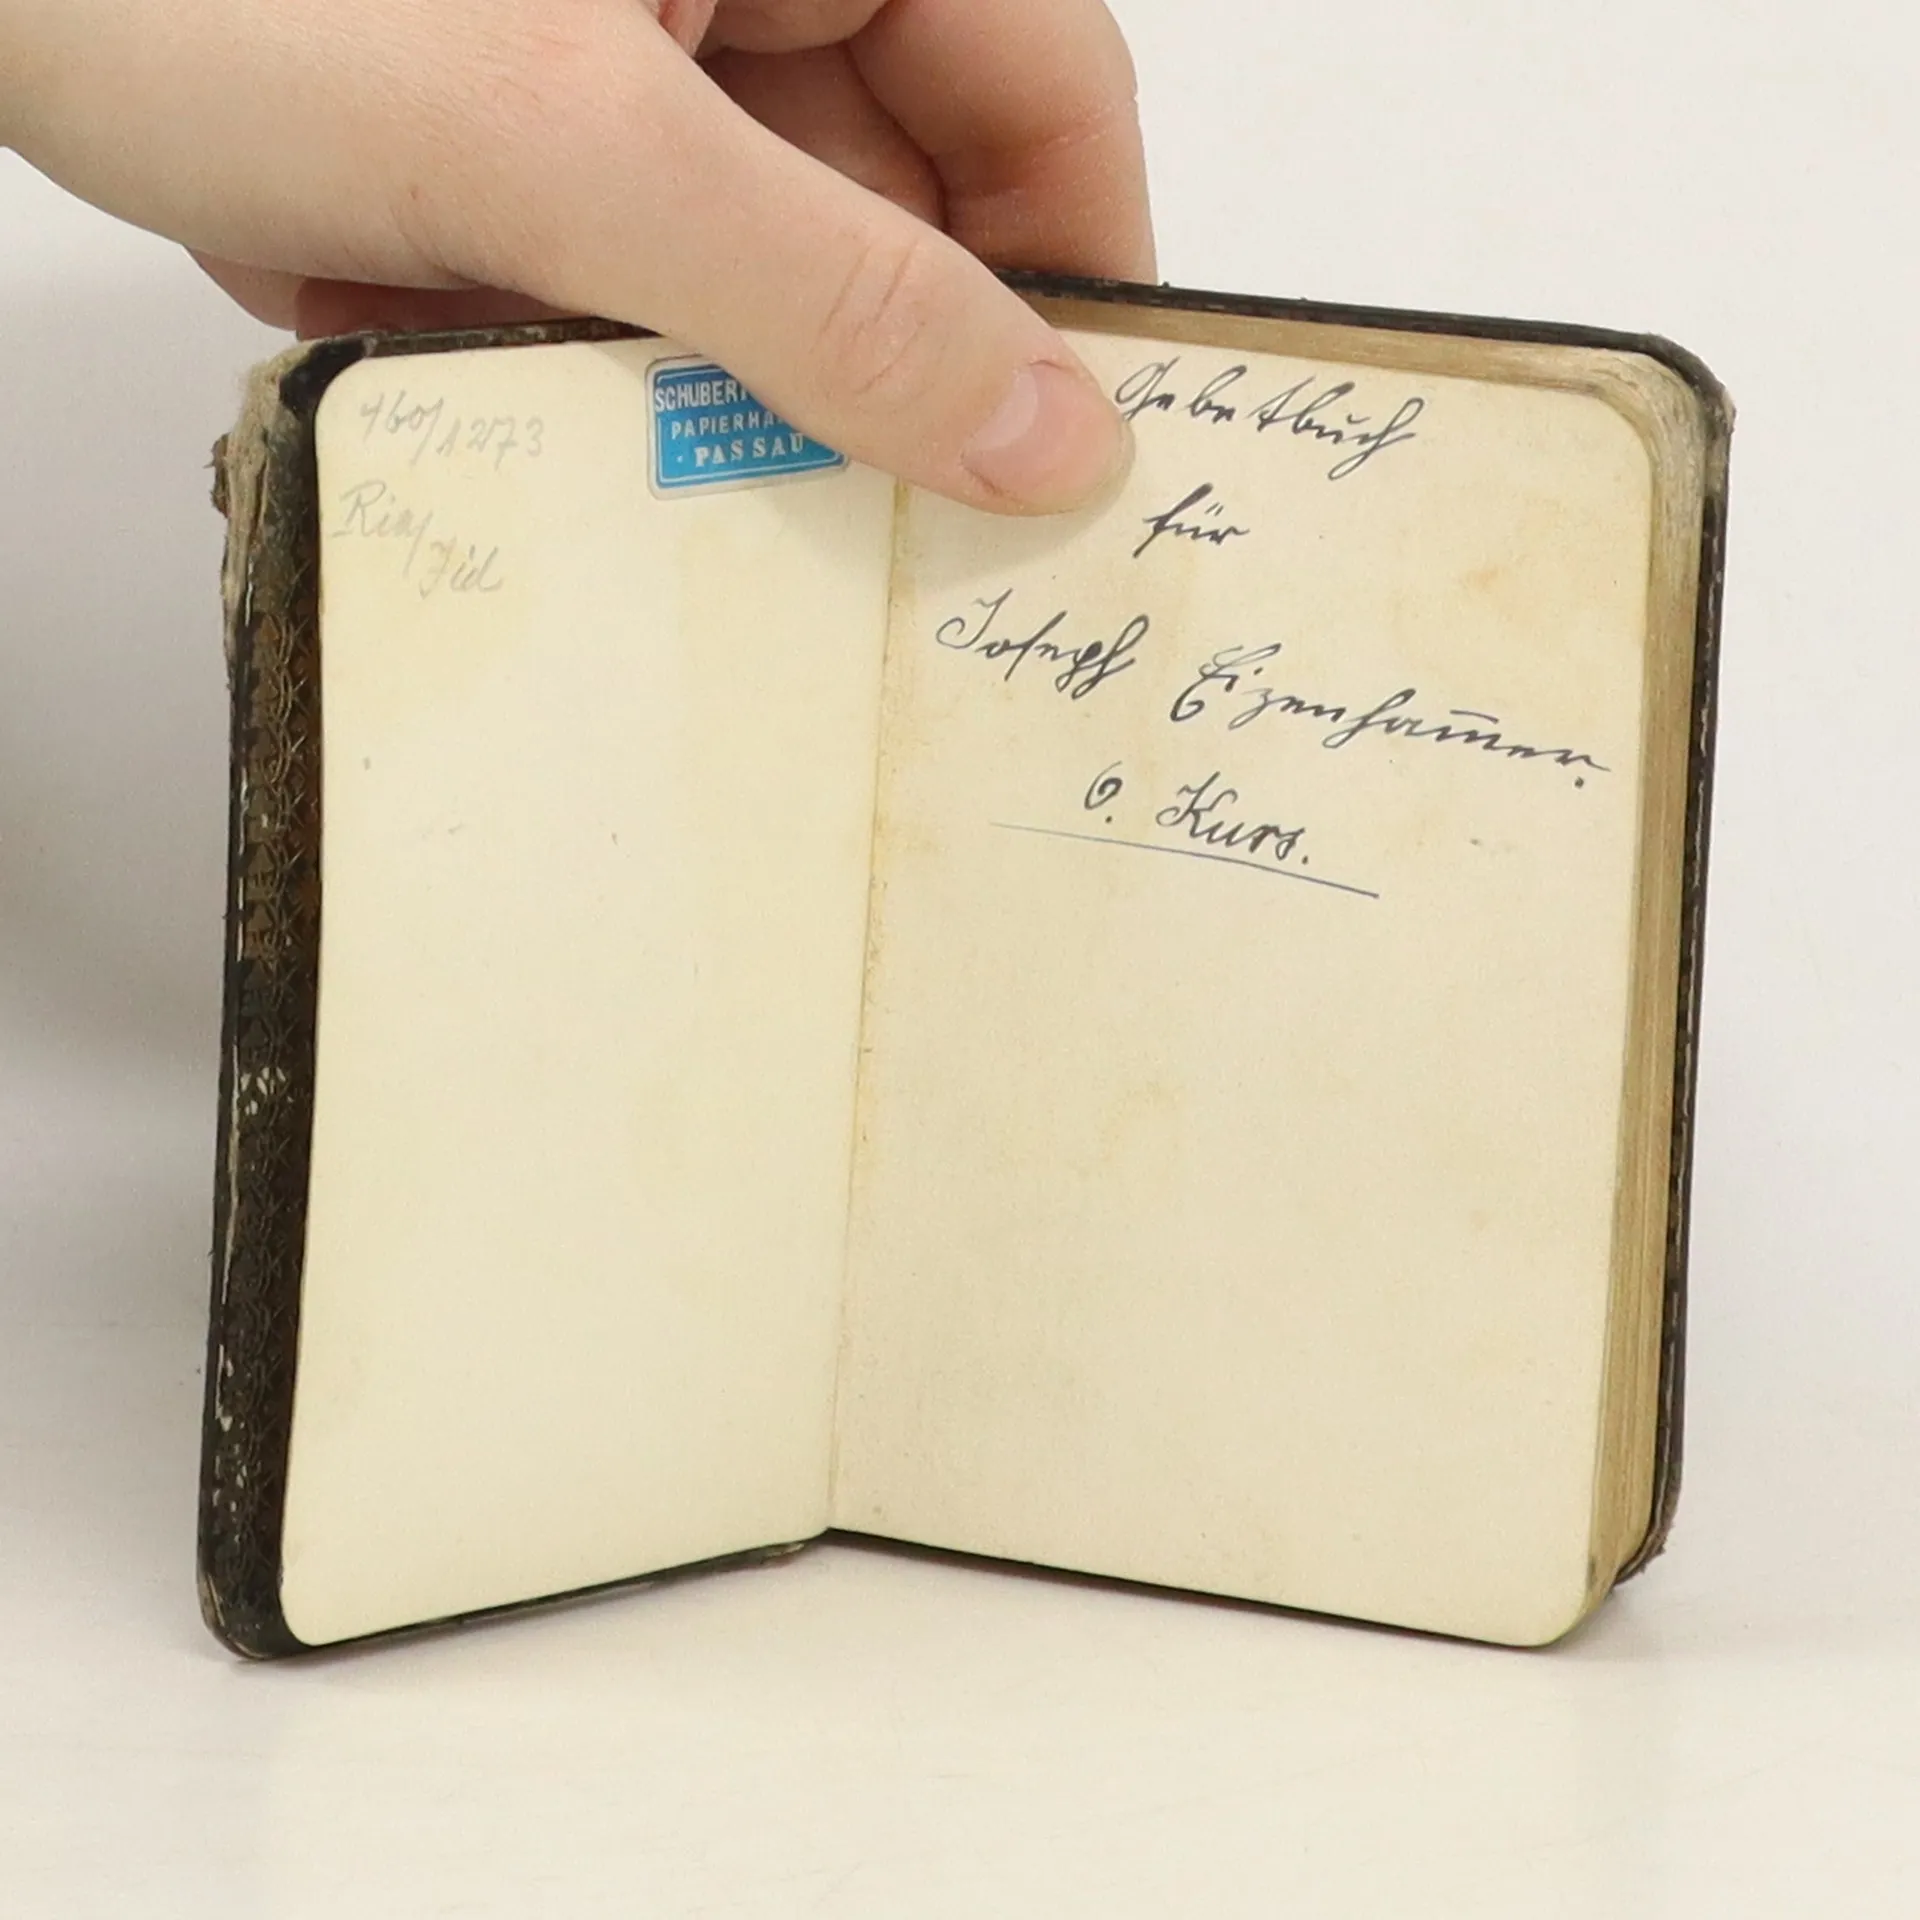 460/1273
SCHUBER
PAPIERHA
· PASSAU
Gebetbuch
für
Joseph Eizenham̄er.
6. Kurs.